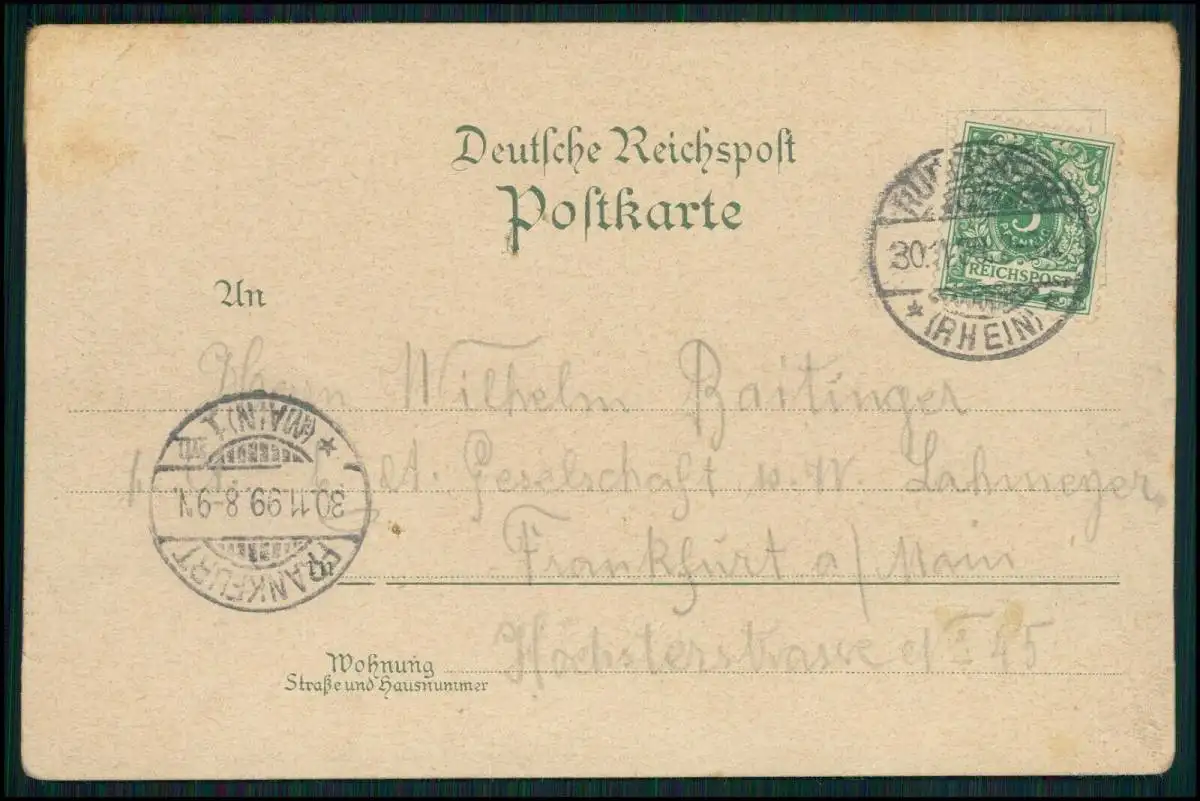 Deutsche Reichspost
Postkarte
5
PFENNIG
REICHSPOST
30.
(RHEIN)
An
Herrn Wilhelm Baitinger
Gesellschaft v. W. Lahmeyer
Frankfurt a/Main
Höchsterstrasse 45
FRANKFURT
30.11.99.8-9N.
(MAIN) 1
in
Wohnung
Straße und Hausnummer